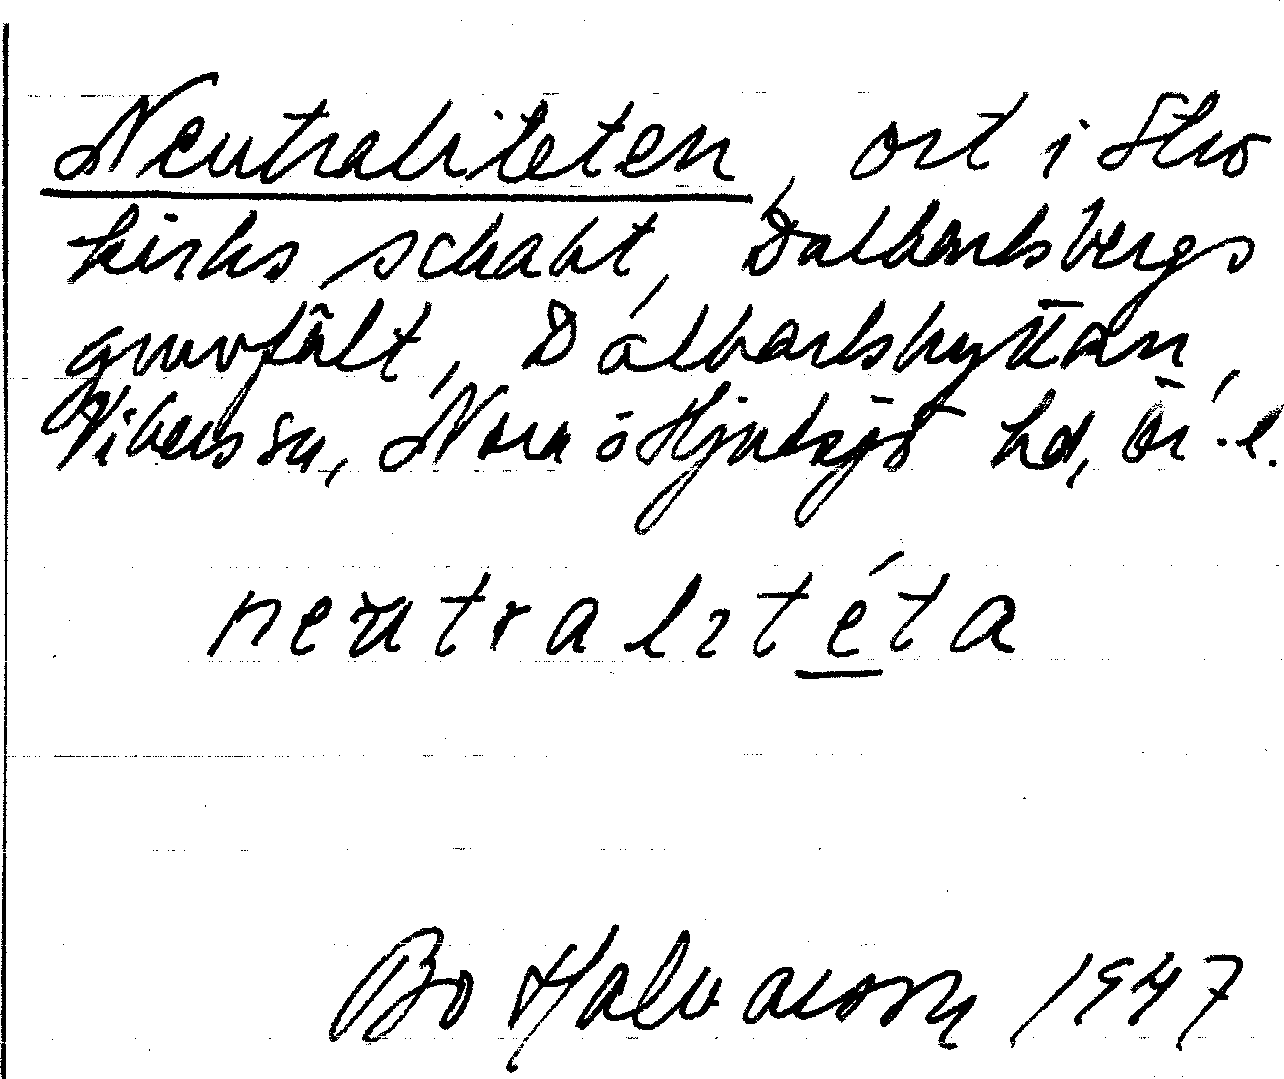 Neutraliteten, ort i Stro
kirks schakt, Dalkarlsbergs
gruvfält, Dalkarlshyttan,
Vikers sn, Nora o Hjulsjö hd, Ör. l.
neutralitéta
Bo Halvarson 1947